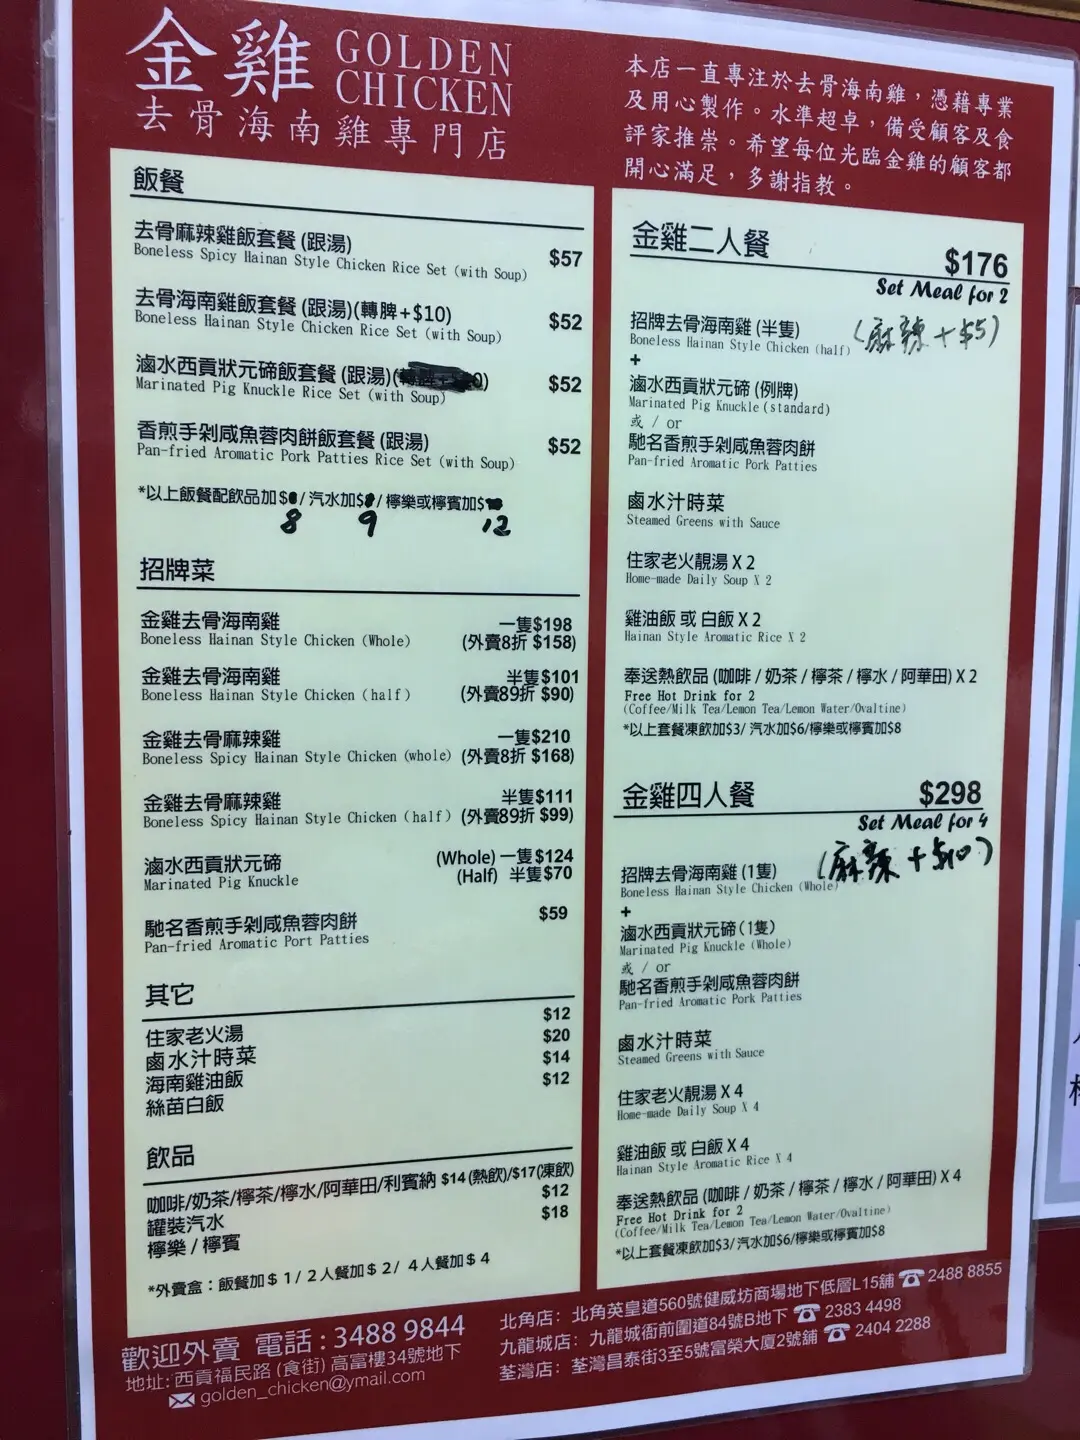 金雞 GOLDEN CHICKEN
去骨海南雞專門店
本店一直專注於去骨海南雞，憑藉專業
及用心製作。水準超卓，備受顧客及食
評家推崇。希望每位光臨金雞的顧客都
開心滿足，多謝指教。
飯餐
去骨麻辣雞飯套餐 (跟湯)
Boneless Spicy Hainan Style Chicken Rice Set (with Soup) $57
去骨海南雞飯套餐 (跟湯)(轉脾+$10)
Boneless Hainan Style Chicken Rice Set (with Soup) $52
滷水西貢狀元碲飯套餐 (跟湯)
Marinated Pig Knuckle Rice Set (with Soup) $52
香煎手剁咸魚蓉肉餅飯套餐 (跟湯)
Pan-fried Aromatic Pork Patties Rice Set (with Soup) $52
*以上飯餐配飲品加$ / 汽水加$ / 檸樂或檸賓加$
8 9 12
招牌菜
金雞去骨海南雞 一隻$198
Boneless Hainan Style Chicken (Whole) (外賣8折 $158)
金雞去骨海南雞 半隻$101
Boneless Hainan Style Chicken (half) (外賣89折 $90)
金雞去骨麻辣雞 一隻$210
Boneless Spicy Hainan Style Chicken (whole) (外賣8折 $168)
金雞去骨麻辣雞 半隻$111
Boneless Spicy Hainan Style Chicken (half) (外賣89折 $99)
滷水西貢狀元碲 (Whole) 一隻$124
Marinated Pig Knuckle (Half) 半隻$70
馳名香煎手剁咸魚蓉肉餅 $59
Pan-fried Aromatic Port Patties
其它
住家老火湯 $12
鹵水汁時菜 $20
海南雞油飯 $14
絲苗白飯 $12
飲品
咖啡/奶茶/檸茶/檸水/阿華田/利賓納 $14 (熱飲)/$17(凍飲)
罐裝汽水 $12
檸樂 / 檸賓 $18
*外賣盒：飯餐加 $ 1 / 2 人餐加 $ 2 / 4 人餐加 $ 4
金雞二人餐 $176
Set Meal for 2
招牌去骨海南雞 (半隻) (麻辣+$5)
Boneless Hainan Style Chicken (half)
+
滷水西貢狀元碲 (例牌)
Marinated Pig Knuckle (standard)
或 / or
馳名香煎手剁咸魚蓉肉餅
Pan-fried Aromatic Pork Patties
鹵水汁時菜
Steamed Greens with Sauce
住家老火靚湯 X 2
Home-made Daily Soup X 2
雞油飯 或 白飯 X 2
Hainan Style Aromatic Rice X 2
奉送熱飲品 (咖啡 / 奶茶 / 檸茶 / 檸水 / 阿華田) X 2
Free Hot Drink for 2
(Coffee/Milk Tea/Lemon Tea/Lemon Water/Ovaltine)
*以上套餐凍飲加$3/ 汽水加$6/檸樂或檸賓加$8
金雞四人餐 $298
Set Meal for 4
招牌去骨海南雞 (1隻) (麻辣+$10)
Boneless Hainan Style Chicken (Whole)
+
滷水西貢狀元碲 (1隻)
Marinated Pig Knuckle (Whole)
或 / or
馳名香煎手剁咸魚蓉肉餅
Pan-fried Aromatic Pork Patties
鹵水汁時菜
Steamed Greens with Sauce
住家老火靚湯 X 4
Home-made Daily Soup X 4
雞油飯 或 白飯 X 4
Hainan Style Aromatic Rice X 4
奉送熱飲品 (咖啡 / 奶茶 / 檸茶 / 檸水 / 阿華田) X 4
Free Hot Drink for 2
(Coffee/Milk Tea/Lemon Tea/Lemon Water/Ovaltine)
*以上套餐凍飲加$3/ 汽水加$6/檸樂或檸賓加$8
歡迎外賣 電話 : 3488 9844
地址: 西貢福民路 (食街) 高富樓34號地下
golden_chicken@ymail.com
北角店： 北角英皇道560號健威坊商場地下低層L15舖 ☎ 2488 8855
九龍城店： 九龍城衙前圍道84號B地下 ☎ 2383 4498
荃灣店： 荃灣昌泰街3至5號富榮大廈2號舖 ☎ 2404 2288